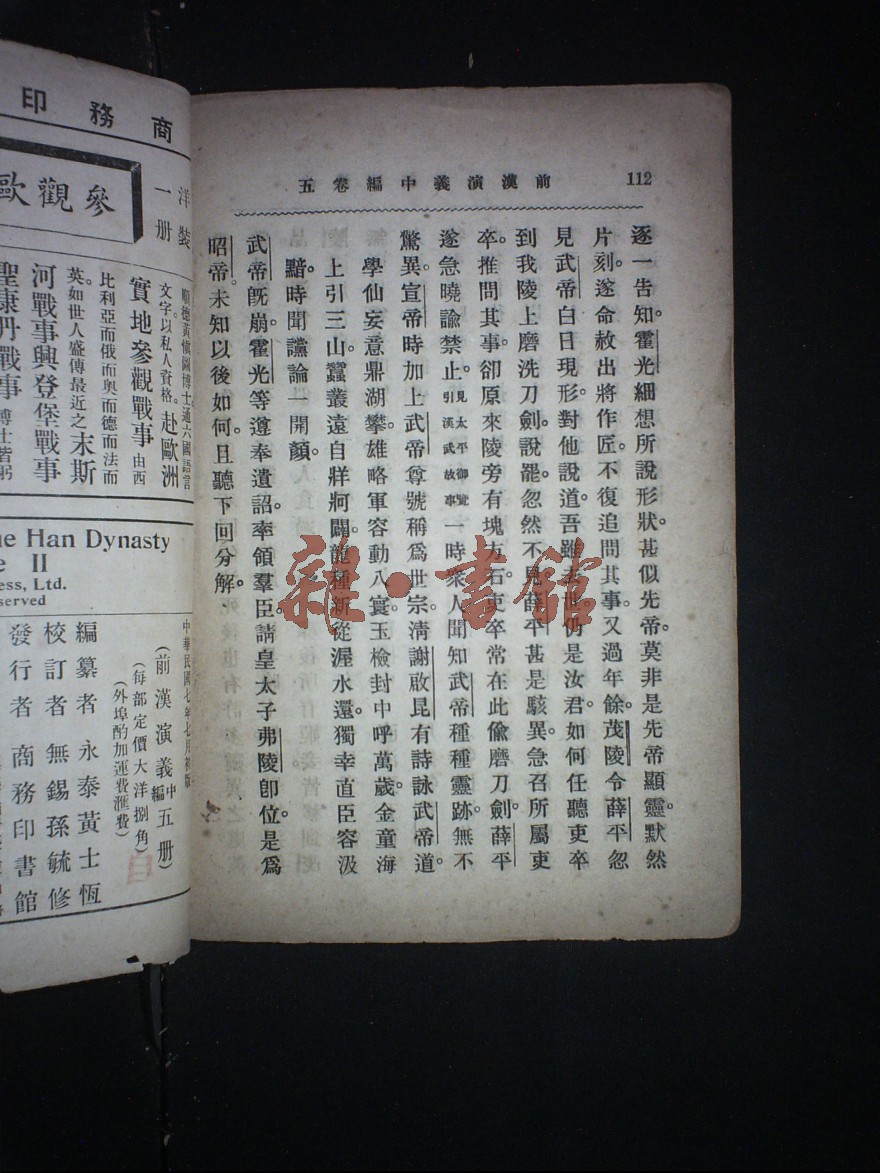 前漢演義中編卷五
112
逐一告知。霍光細想所說形狀。甚似先帝。莫非是先帝顯靈。默然
片刻。遂命赦出將作匠。不復追問其事。又過年餘。茂陵令薛平忽
見武帝白日現形。對他說道。吾雖去世。仍是汝君。如何任聽吏卒
到我陵上磨洗刀劍。說罷。忽然不見。薛平甚是駭異。急召所屬吏
卒。推問其事。卻原來陵旁有塊方石。吏卒常在此偸磨刀劍。薛平
遂急曉諭禁止。見太平御覽引漢武故事一時衆人聞知武帝種種靈跡。無不
驚異。宣帝時加上武帝尊號稱爲世宗。淸謝啟昆有詩詠武帝道。
學仙妄意鼎湖攀。雄略軍容動八寰。玉檢封中呼萬歲。金童海
上引三山。蠶叢遠自牂牁闢。龍種新從渥水還。獨幸直臣容汲
黯。時聞讜論一開顏。
武帝旣崩。霍光等遵奉遺詔。率領羣臣。請皇太子弗陵卽位。是爲
昭帝。未知以後如何。且聽下回分解。
雜·書館
商務印
洋裝一册
參觀歐
順德黃愼圖博士通六國語言
文字。以私人資格。赴歐洲
實地參觀戰事 由西
比利亞而俄而奧而德而法而
英。如世人盛傳最近之末斯
河戰事興登堡戰事
聖康丹戰事
he Han Dynasty
e II
ess, Ltd.
served
中華民國七年七月初版
（前漢演義中編五册）
（每部定價大洋捌角）
（外埠酌加運費匯費）
編纂者 永泰黃士恆
校訂者 無錫孫毓修
發行者 商務印書館